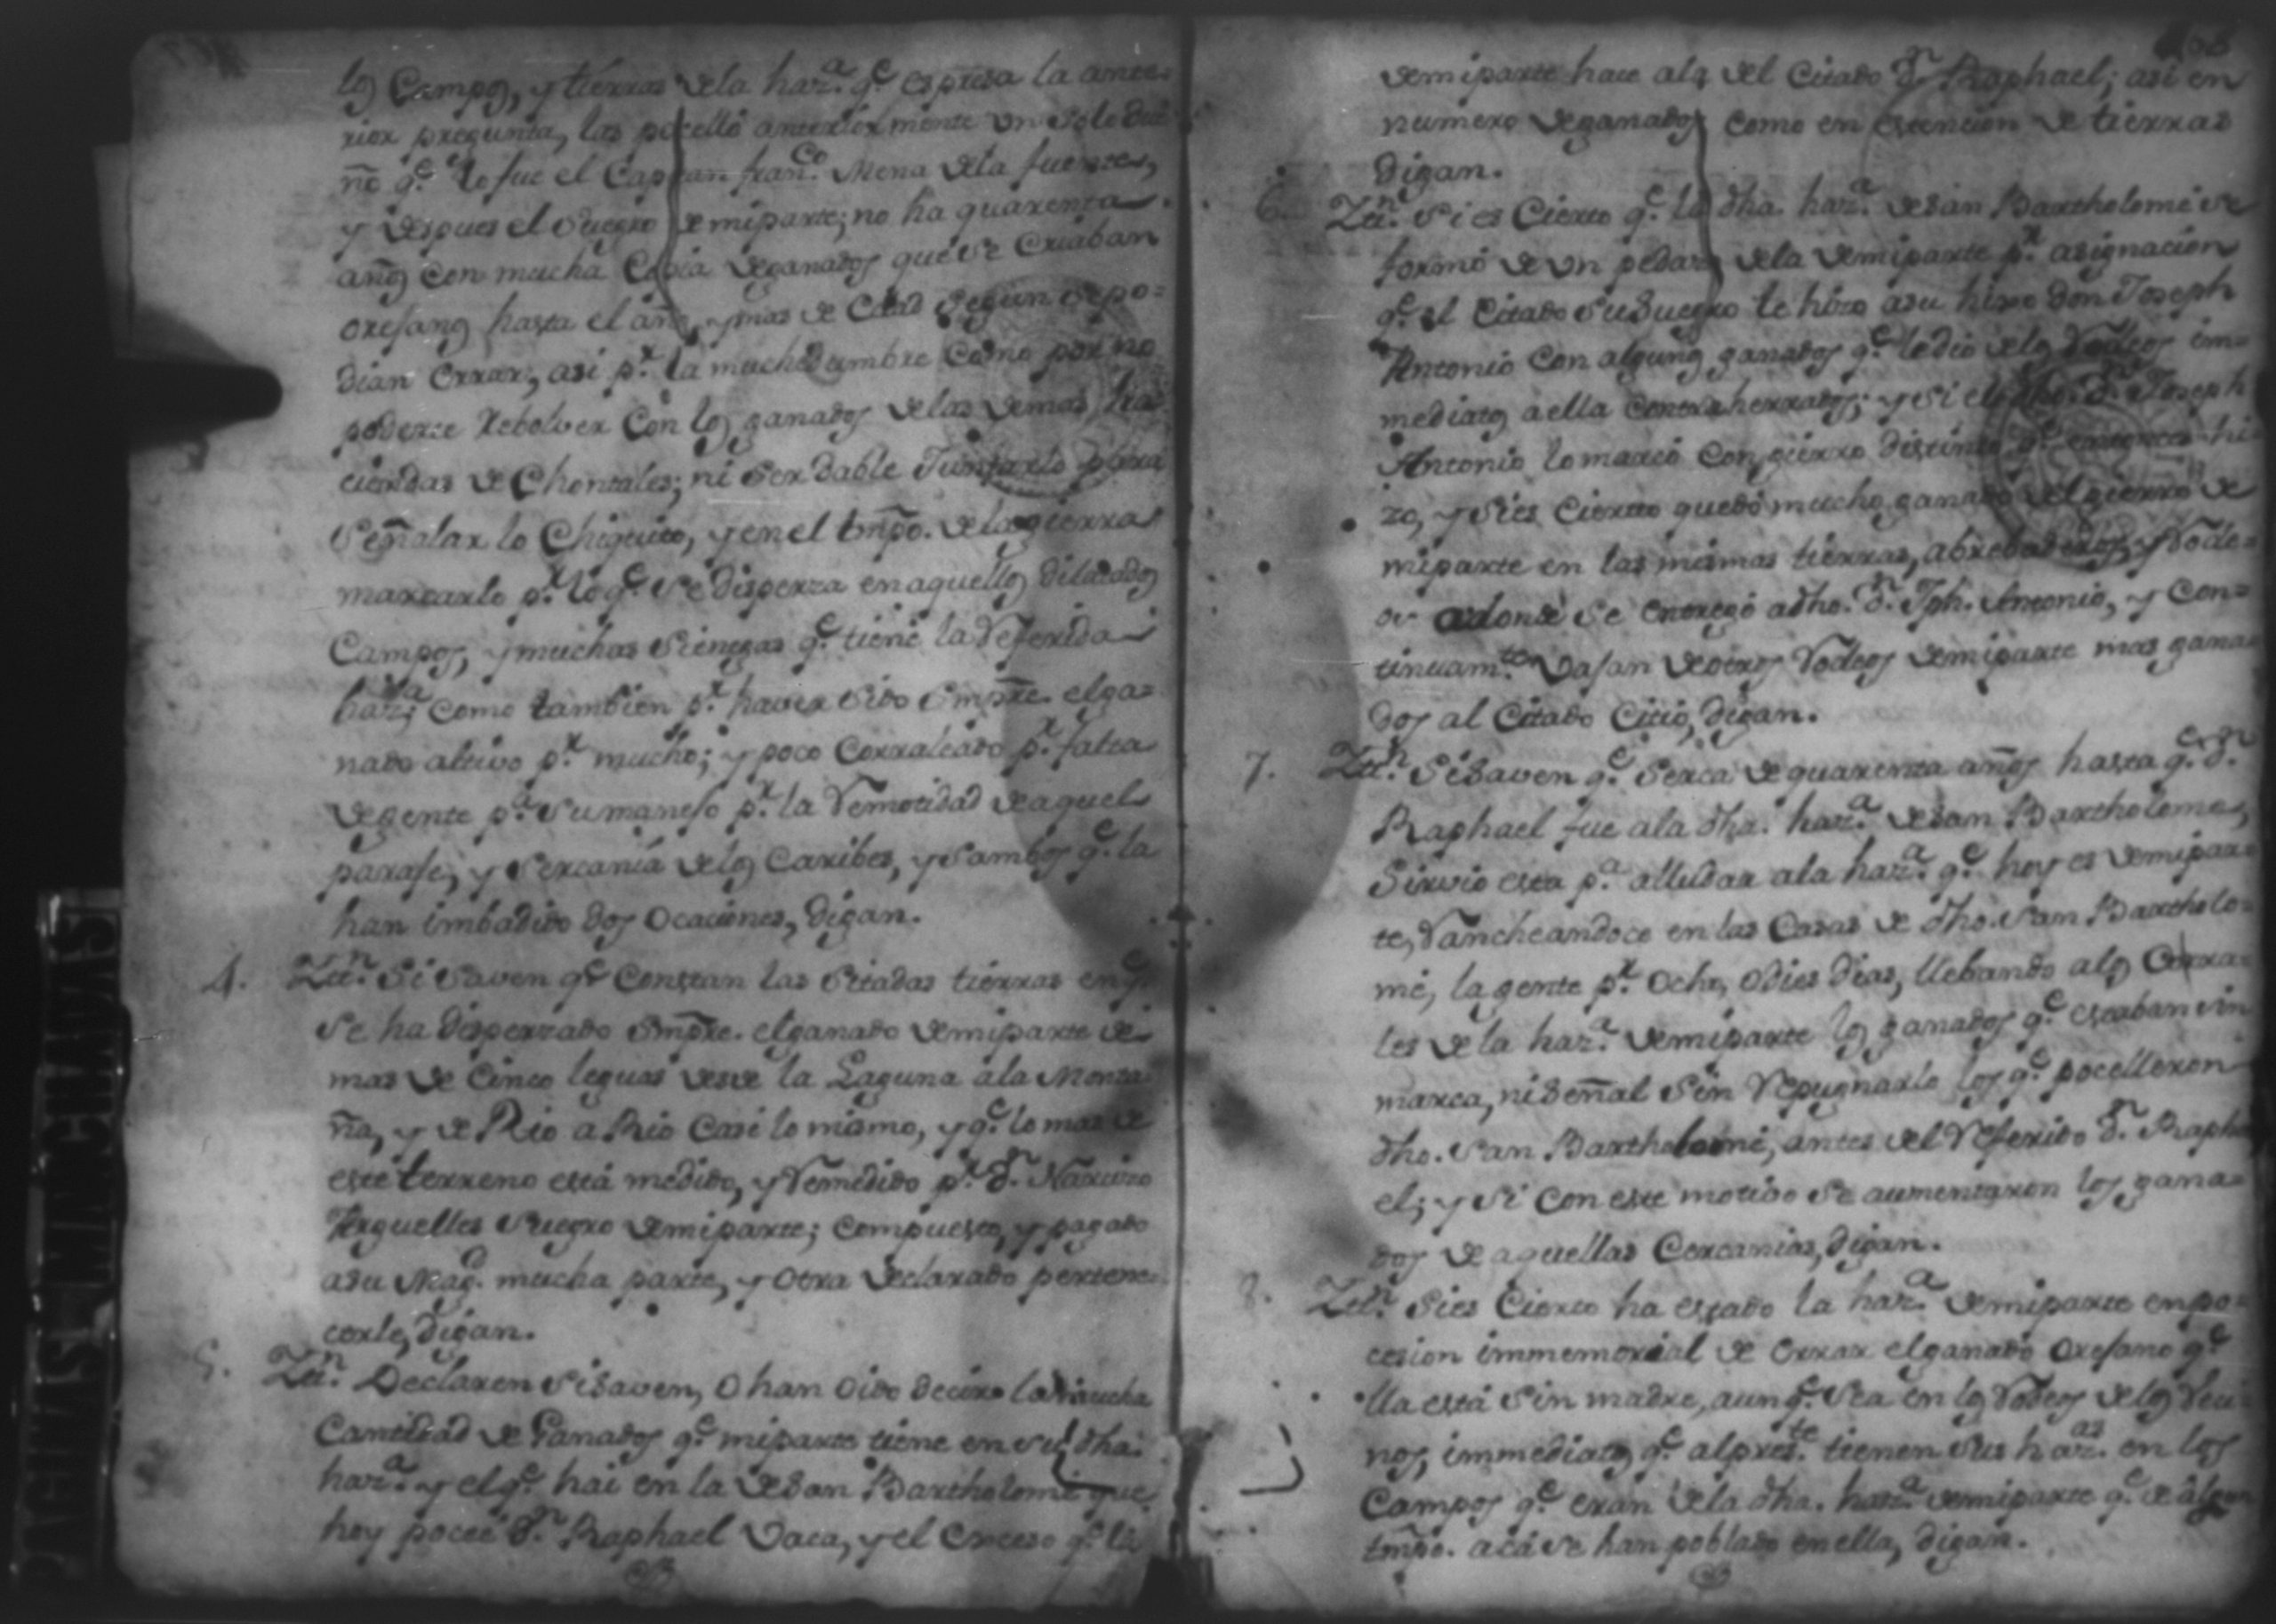 los Campos, y tierras dela haz.ª q.e espresa la ante-
rior pregunta, las pocelló anteriormente un solo due-
ño q.e lo fue el Capitan fran.co Mena dela fuente,
y despues el Suegro demiparte; no ha quarenta
años con mucha Copia deganados que se Criaban
orejanos hasta el año, y mas de Edad segun sepo-
dian errar, asi p.r la muchedumbre como por no
poderse Rebolver Con los ganados delas demas ha-
ciendas de Chontales; ni ser dable Juntarlo para
Señalar lo Chiquito, y en el tmpo. de la yierra
marcarlo p.r lo q.e se disperza en aquellos dilatados
Campos, y muchas sienegas q.e tiene la Referida
haz.ª; como tambien p.r haver sido smpre. elga-
nado altivo p.r mucho; y poco Corraleado p.r falta
degente p.ª sumanejo p.r la Remotidad deaquel
paraje, y sercanía delos Caribes, y Sambos q.e la
han imbadido dos ocaciones, digan.
4. Ytt.n Si Saven q.e Constan las sitadas tierras en q.e
se ha disperzado smpre. elganado demiparte de
mas de Cinco leguas desde la Laguna ala Monta-
ña, y de Rio a Rio casi lo mismo, y q.e lo mas de
este terreno está medido, y Remedido p.r d.n Narcizo
Arguelles Suegro demiparte; compuesto, y pagado
asu Mag.d mucha parte, y otra declarado pertene-
cerle, digan.
5. Ytt.n Declaren si saven, o han oido decir la mucha
Cantidad de Ganados q.e miparte tiene en su dha.
haz.ª y el q.e hai en la deSan Bartholome que
hoy poceé d.n Raphael Vaca, y el Exceso q.e la
demiparte hace ala del Citado d.n Raphael; asi en
numero deganados como en estencion de tierras
digan.
6. Ytt.n Si es Cierto q.e la dha. haz.ª deSan Bartholomé se
formó de un pedazo dela demiparte p.r asignacion
q.e el Citado suSuegro le hizo asu hijo don Joseph
Antonio con algunos ganados q.e le dió delos Rodeos im-
mediatos a ella contraherrados; y si el dho. d.n Joseph
Antonio lo marcó con yierro distinto q.e entonces hi-
zo, y si es Cierto quedó mucho ganado del yierro de
miparte en las mismas tierras, abrebaderos, y Rode-
os adonde se entregó adho. d.n Jph. Antonio, y Con-
tinuam.te bajan de otros Rodeos demiparte mas gana-
dos al Citado Citio, digan.
7. Ytt.n Si Saven q.e Serca de quarenta años hasta q.e d.n
Raphael fue ala dha. haz.ª deSan Bartholome,
Sirvió esta p.ª alludar ala haz.ª q.e hoy es demipar-
te, Rancheandoce en las Casas de dho. San Bartholo-
mé, la gente p.r ocho, o dies dias, llebando alos Corra-
les de la haz.ª demiparte los ganados q.e estaban sin
marca, ni señal sin Repugnarlo los q.e pocelleron
dho. San Bartholomé, antes del Referido d.n Rapha-
el; y si con este motibo se aumentaron los gana-
dos de aquellas Cercanias, digan.
8. Ytt.n Si es Cierto ha estado la haz.ª demiparte en po-
cesion immemorial de errar elganado orejano q.e
lla está sin madre, aunq.e Sea en los Rodeos delos Veci-
nos, immediatos q.e alpres.te tienen sus haz.as en los
Campos q.e eran dela dha. haz.ª demiparte q.e de algun
tmpo. acá se han poblado en ella, digan.